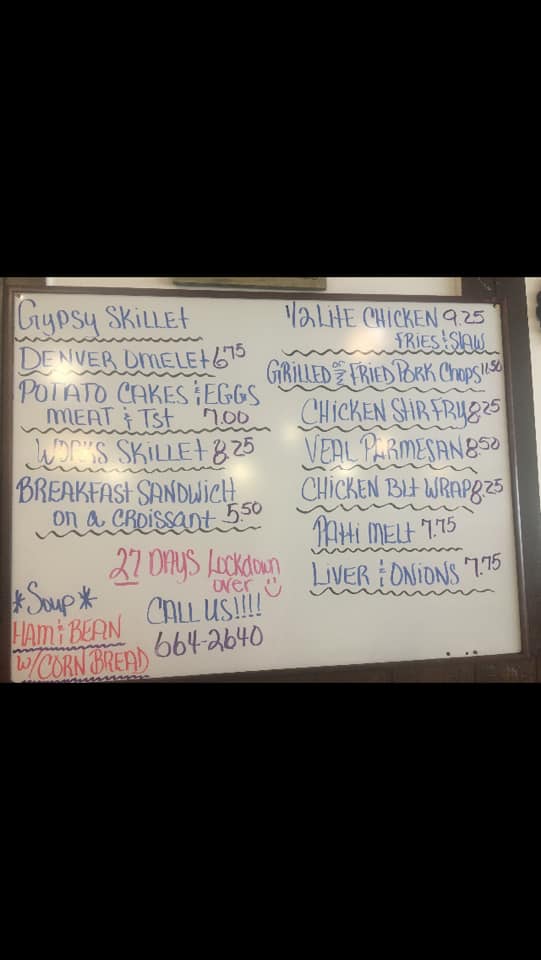 Gypsy Skillet
DENVER OMELET 6.75
POTATO CAKES & EGGS
MEAT & TST 7.00
WORKS SKILLET 8.25
BREAKFAST SANDWICH
on a CROISSANT 5.50
27 DAYS Lockdown
over
*Soup*
CALL US!!!!
HAM & BEAN
664-2640
W/CORN BREAD
1/2 LITE CHICKEN 9.25
FRIES & SLAW
GRILLED or FRIED PORK CHOPS 11.50
CHICKEN STIR FRY 8.25
VEAL PARMESAN 8.50
CHICKEN BLT WRAP 8.25
PATTI MELT 7.75
LIVER & ONIONS 7.75